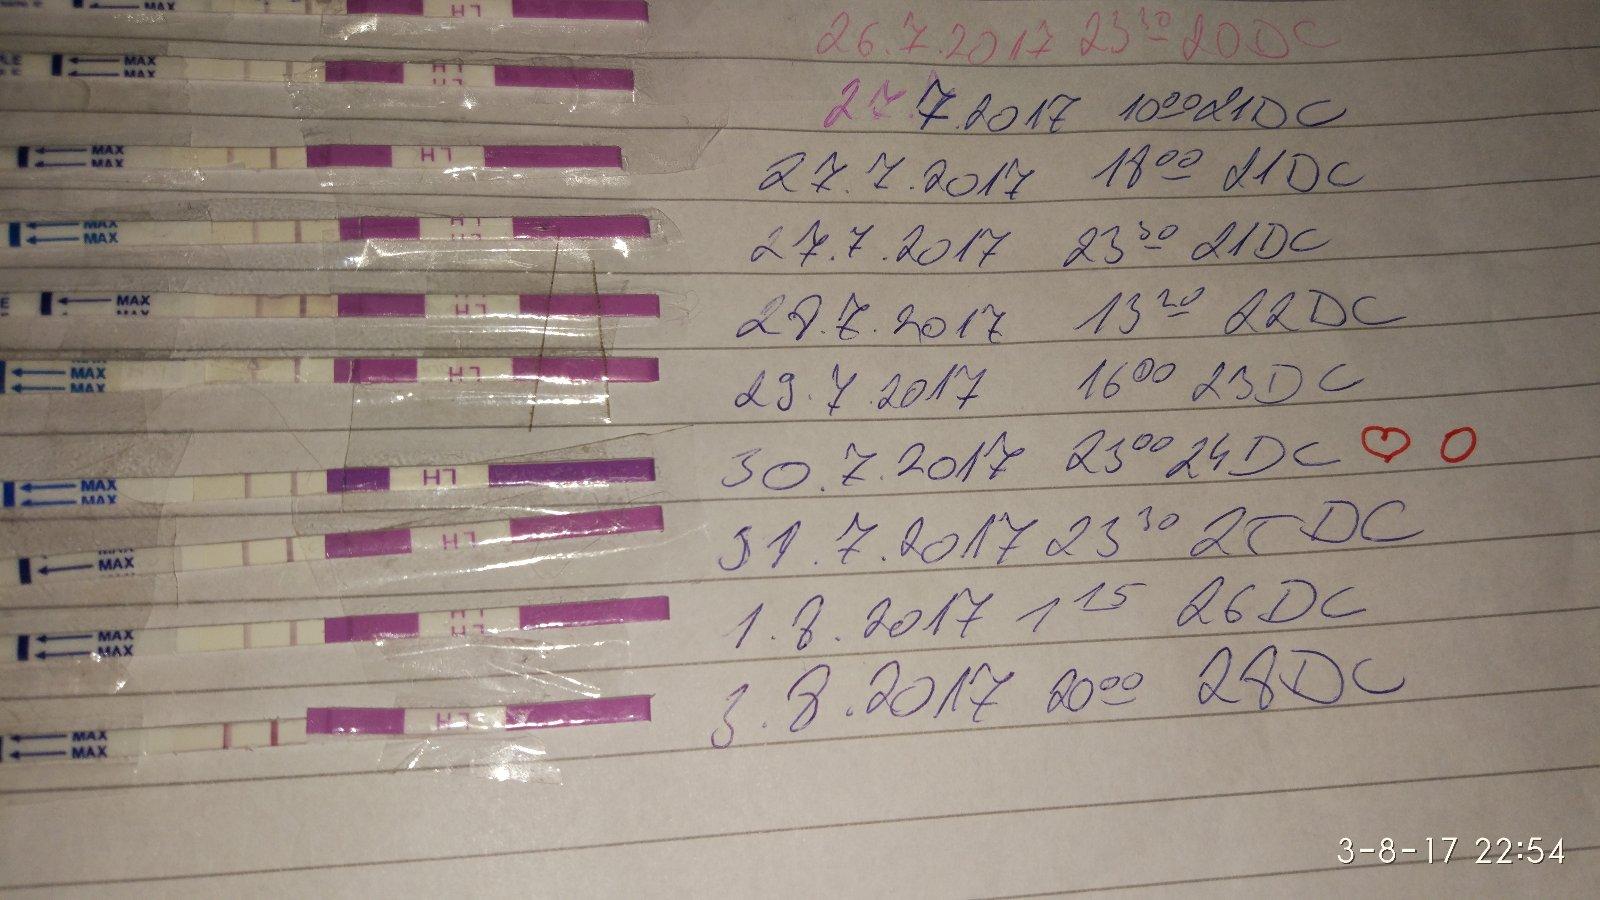 MAX LH 26.7.2017 23³⁰ 20DC
MAX MAX LH 27.7.2017 10⁰⁰ 21DC
MAX MAX LH 27.7.2017 18⁰⁰ 21DC
MAX MAX LH 27.7.2017 23³⁰ 21DC
MAX MAX LH 28.7.2017 13²⁰ 22DC
MAX MAX LH 29.7.2017 16⁰⁰ 23DC
MAX MAX LH 30.7.2017 23⁰⁰ 24DC
MAX MAX LH 31.7.2017 23³⁰ 25DC
MAX MAX LH 1.8.2017 1¹⁵ 26DC
MAX MAX LH 3.8.2017 20⁰⁰ 28DC
3-8-17 22:54